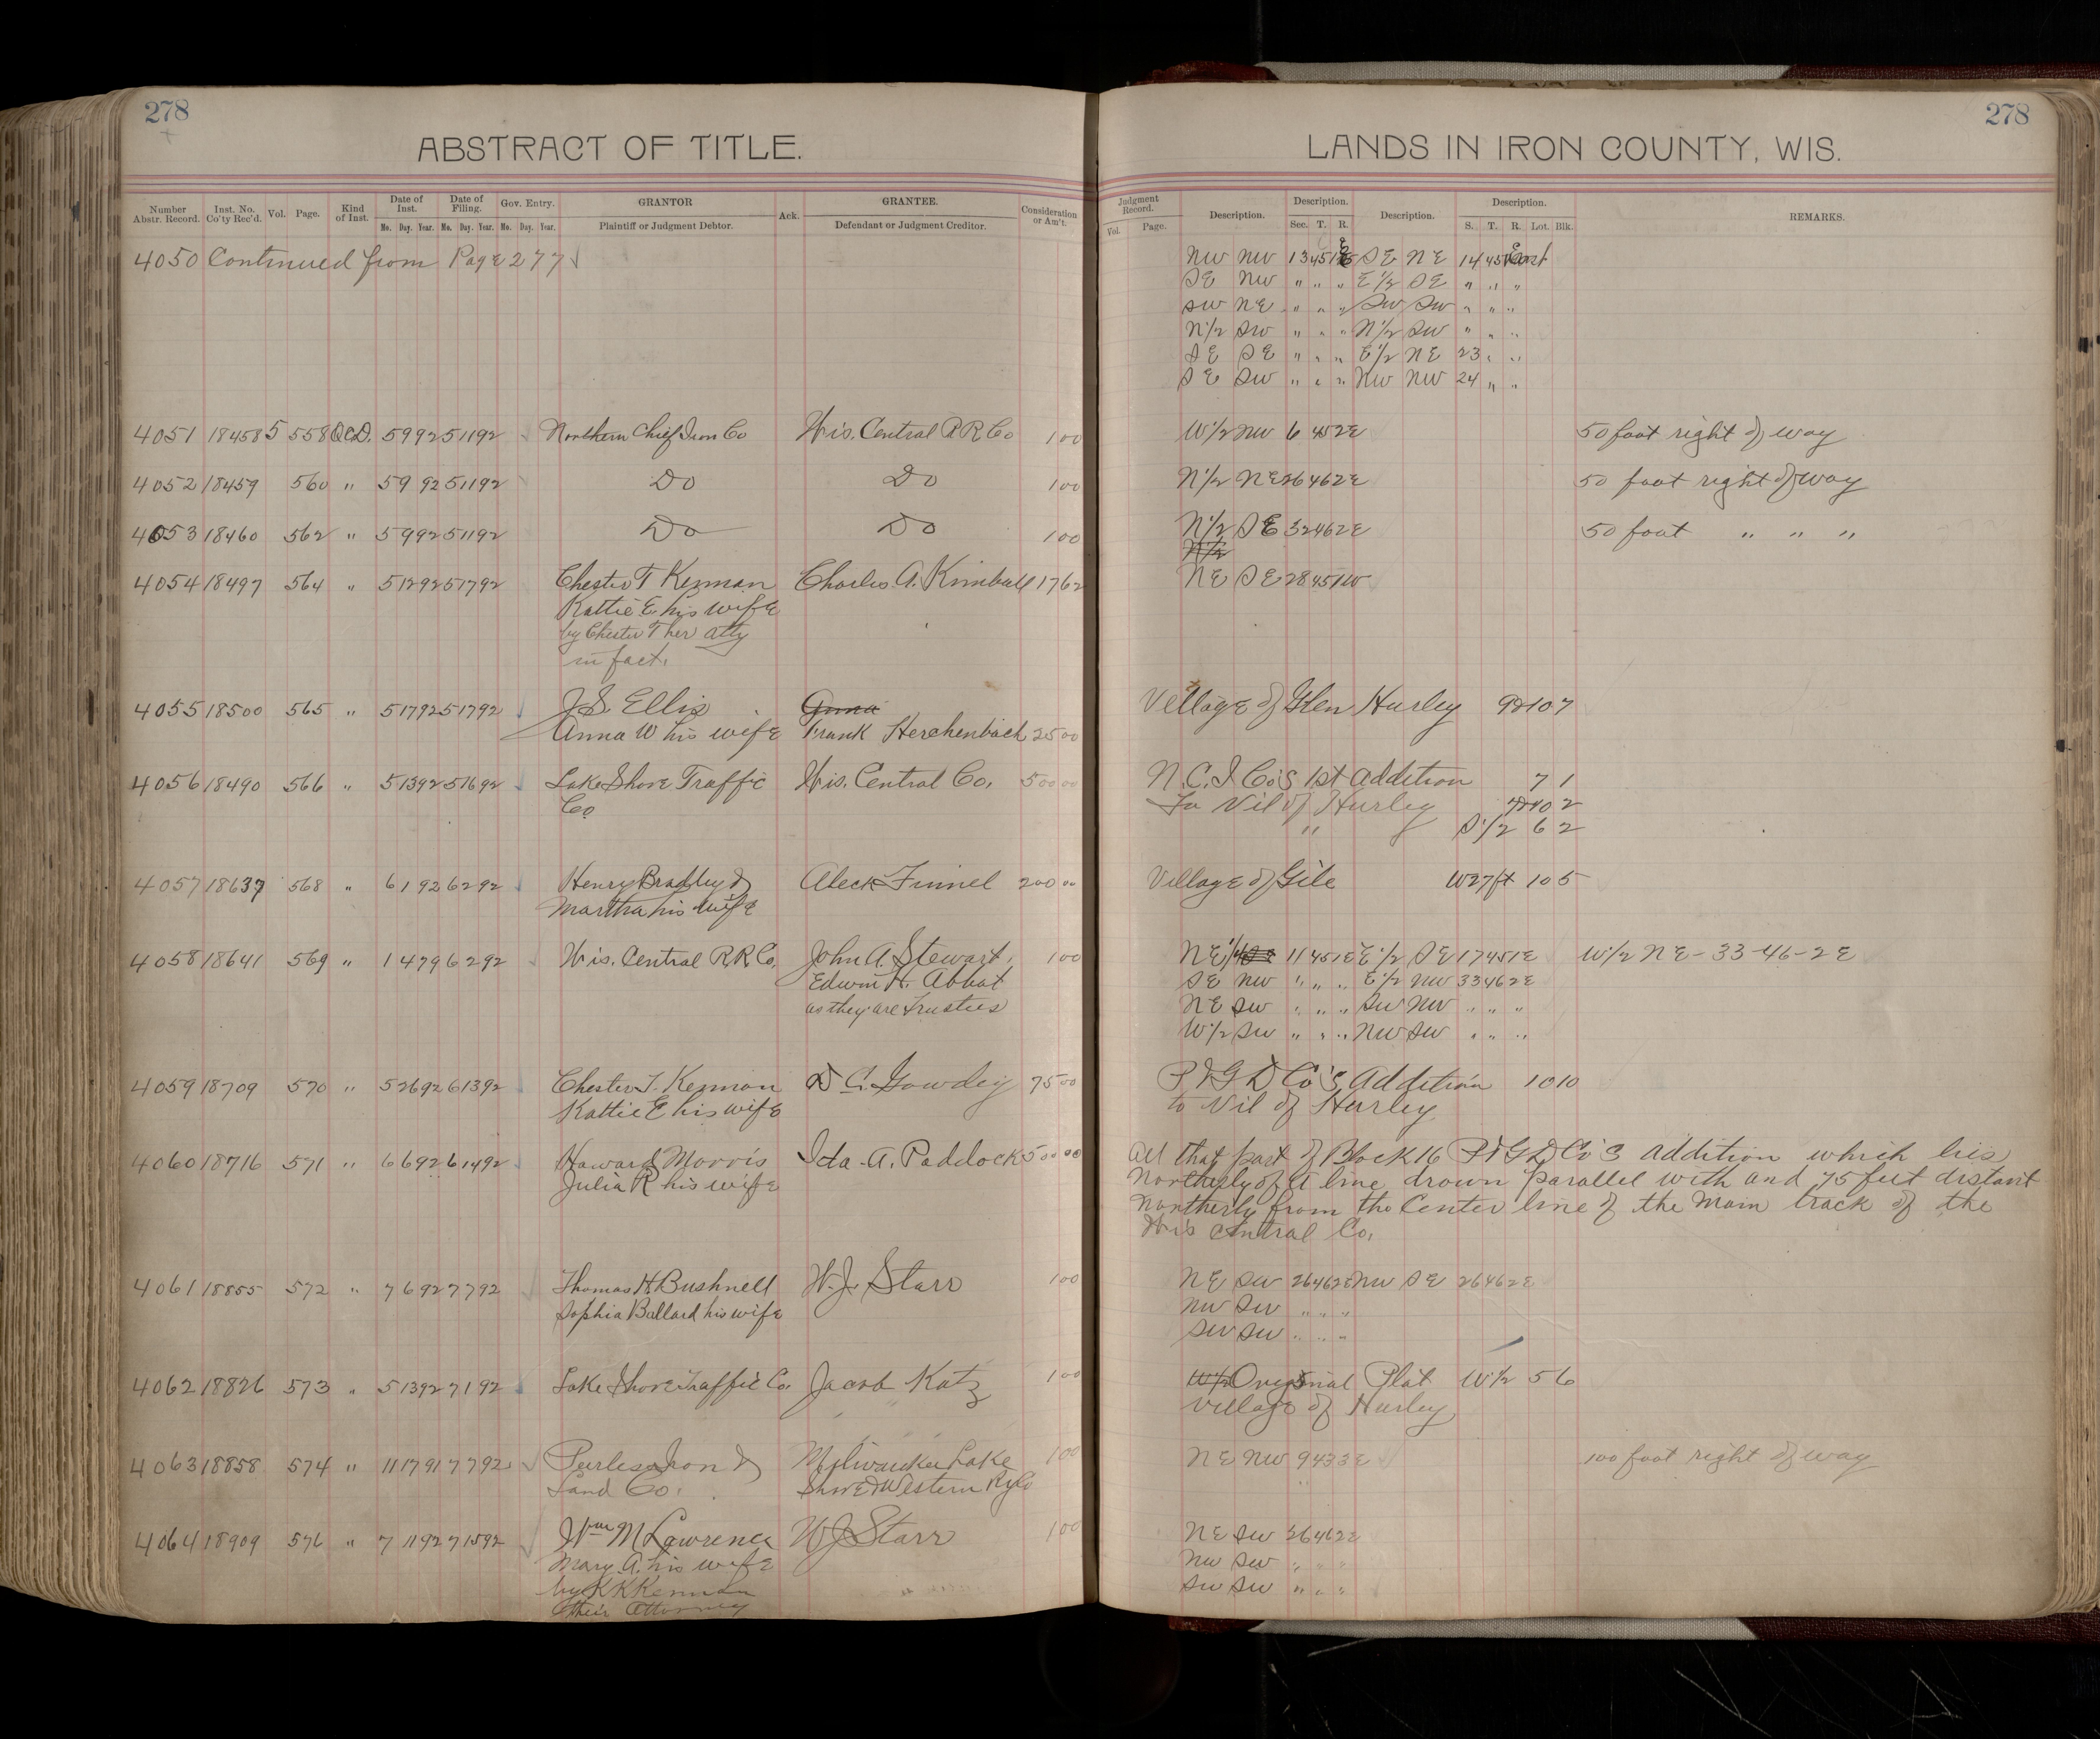 278
ABSTRACT OF TITLE.
Number Abstr. Record. Inst. No. Co'ty Rec'd. Vol. Page. Kind of Inst. Date of Inst. Mo. Day. Year. Date of Filing. Mo. Day. Year. Gov. Entry. Mo. Day. Year. GRANTOR Plaintiff or Judgment Debtor. Ack. GRANTEE. Defendant or Judgment Creditor. Consideration or Am't.
4050 Continued from Page 277
4051 18458 5 558 Q.C.D. 5 9 92 5 11 92 Northern Chief Iron Co Wis. Central R R Co 1 00
4052 18459 560 " 5 9 92 5 11 92 Do Do 1 00
4053 18460 562 " 5 9 92 5 11 92 Do Do 1 00
4054 18497 564 " 5 12 92 5 17 92 Chester T Kenman Charles A. Kimball 17 62
Kattie E his wife
by Chester T her atty
in fact.
4055 18500 565 " 5 17 92 5 17 92 J.S. Ellis Anna
Anna W his wife Frank Herchenbach 25 00
4056 18490 566 " 5 13 92 5 16 92 Lake Shore Traffic Wis. Central Co. 500 00
Co
4057 18637 568 " 6 1 92 6 2 92 Henry Bradley & Aleck Finnel 200 00
Martha his wife
4058 18641 569 " 1 4 79 6 2 92 Wis. Central R.R. Co. John A. Stewart, 1 00
Edwin H. Abbot
as they are trustees
4059 18709 570 " 5 26 92 6 13 92 Chester T. Kenman D C. Gowdey 75 00
Kattie E his wife
4060 18716 571 " 6 6 92 6 14 92 Howard Morris Ida A. Paddock 500 00
Julia R his wife
4061 18855 572 " 7 6 92 7 7 92 Thomas H Bushnell W.J. Starr 1 00
Sophia Ballard his wife
4062 18826 573 " 5 13 92 7 1 92 Lake Shore Traffic Co. Jacob Katz 1 00
4063 18858 574 " 11 17 91 7 7 92 Perless Iron & Milwaukee Lake 1 00
Land Co. Shore & Western Ry Co
4064 18909 576 " 7 11 92 7 15 92 Wm M Lawrence W J Starr 1 00
Mary A. his wife
by K K Kenman
their Attorney
278
LANDS IN IRON COUNTY, WIS.
Judgment Record. Vol. Page. Description. Description. Sec. T. R. Description. Description. S. T. R. Lot. Blk. REMARKS.
NW NW 13 45 1 E SE NE 14 45 1 East
SE NW " " " E 1/2 SE " " "
SW NE " " " SW SW " " "
N 1/2 SW " " " N 1/2 SW " " "
SE SE " " " E 1/2 NE 23 " "
SE SW " " " NW NW 24 " "
W 1/2 NW 6 45 2E 50 foot right of way
N 1/2 NE 26 46 2E 50 foot right of way
N 1/2 SE 32 46 2E 50 foot " " "
N 1/2
NE SE 28 45 1W
Village of Glen Hurley 9&10 7
N.C.I. Co's 1st Addition 7 1
To Vil of Hurley 9&10 2
" S 1/2 6 2
Village of Gile W 27 ft 10 5
NE 1/4 11 45 1E E 1/2 SE 17 45 1E W 1/2 NE - 33-46-2E
SE NW " " " E 1/2 NW 33 46 2E
NE SW " " " SW NW " " "
W 1/2 SW " " " NW SW " " "
P & G D Co's Addition 10 10
to Vil of Hurley
All that part of Block 16 P & G D Co's addition which lies
Northerly of a line drawn parallel with and 75 feet distant
Northerly from the Center line of the Main track of the
Wis Central Co.
NE SW 26 46 2E NW SE 26 46 2E
NW SW " " "
SW SW " " "
W 1/2 Original Plat W 1/2 5 6
Village of Hurley
NE NW 9 43 3E 100 foot right of way
NE SW 26 46 2E
NW SW " " "
SW SW " " "